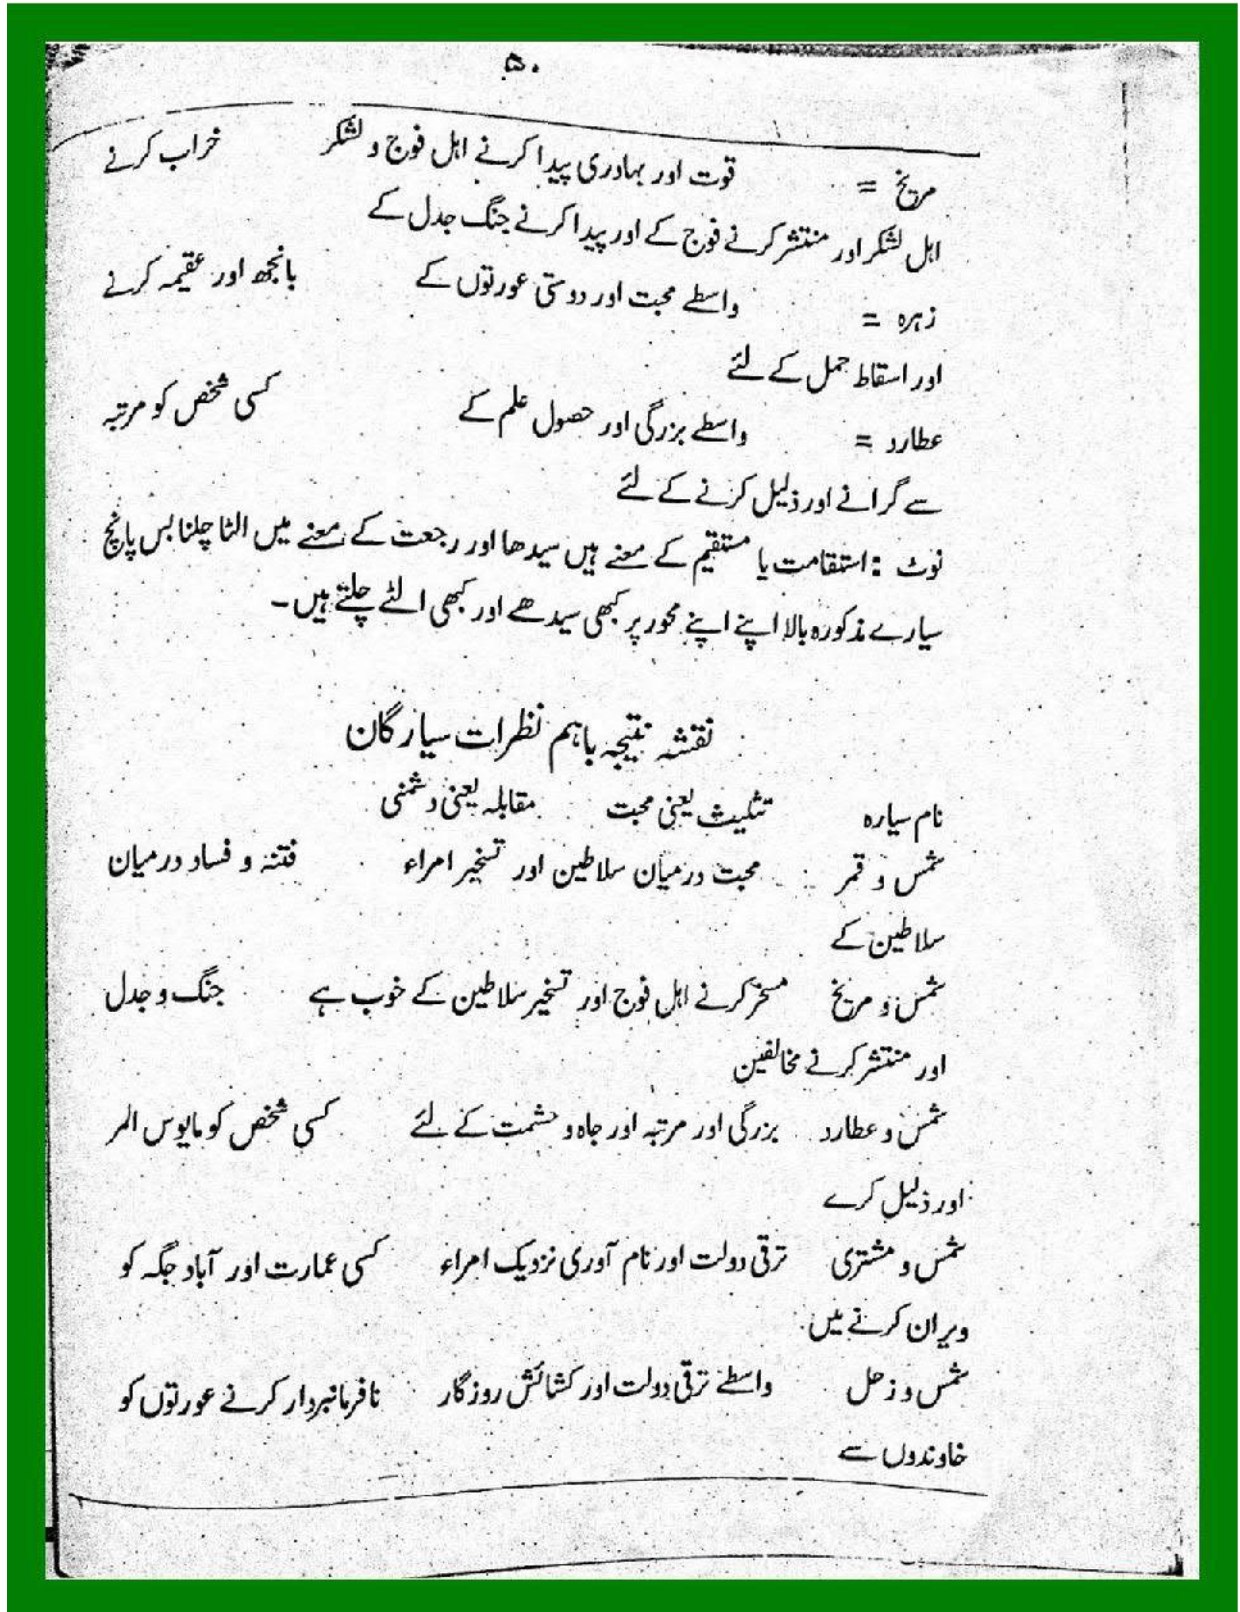 ۵۰
مریخ = قوت اور بہادری پیدا کرنے اہل فوج و لشکر خراب کرنے
اہل لشکر اور منتشر کرنے فوج کے اور پیدا کرنے جنگ جدل کے
زہرہ = واسطے محبت اور دوستی عورتوں کے بانجھ اور عقیمہ کرنے
اور اسقاط حمل کے لئے
عطارد = واسطے بزرگی اور حصول علم کے کسی شخص کو مرتبہ
سے گرانے اور ذلیل کرنے کے لئے
نوٹ : استقامت یا مستقیم کے معنے ہیں سیدھا اور رجعت کے معنے میں الٹا چلنا بس پانچ
سیارے مذکورہ بالا اپنے اپنے محور پر کبھی سیدھے اور کبھی الٹے چلتے ہیں۔
نقشہ نتیجہ باہم نظرات سیارگان
نام سیارہ تثلیث یعنی محبت مقابلہ یعنی دشمنی
شمس و قمر محبت درمیان سلاطین اور تسخیر امراء فتنہ و فساد درمیان
سلاطین کے
شمس و مریخ مسخر کرنے اہل فوج اور تسخیر سلاطین کے خوب ہے جنگ و جدل
اور منتشر کرنے مخالفین
شمس و عطارد بزرگی اور مرتبہ اور جاہ و حشمت کے لئے کسی شخص کو مایوس المر
اور ذلیل کرے
شمس و مشتری ترقی دولت اور نام آوری نزدیک امراء کسی عمارت اور آباد جگہ کو
ویران کرنے میں
شمس و زحل واسطے ترقی دولت اور کشائش روزگار نافرمانبردار کرنے عورتوں کو
خاوندوں سے